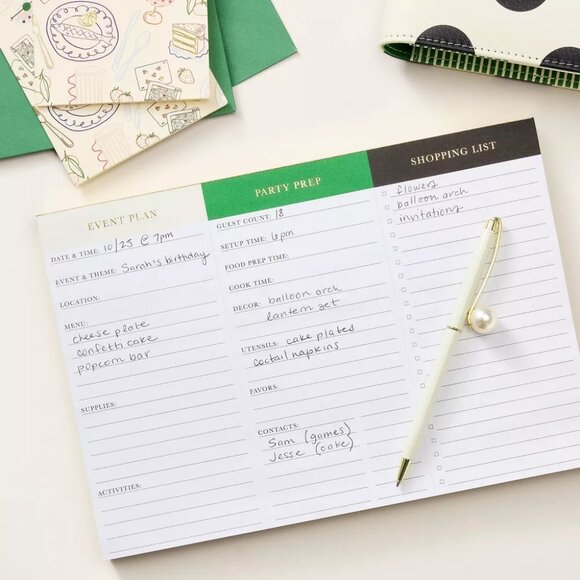 EVENT PLAN
DATE & TIME: 10/25 @ 7pm
EVENT & THEME: Sarah's birthday
LOCATION:
MENU:
cheese plate
confetti cake
popcorn bar
SUPPLIES:
ACTIVITIES:
PARTY PREP
GUEST COUNT: 18
SETUP TIME: 6pm
FOOD PREP TIME:
COOK TIME:
DECOR: balloon arch
lantern set
UTENSILS: cake plates
coctail napkins
FAVORS:
CONTACTS:
Sam (games)
Jesse (cake)
SHOPPING LIST
flowers
balloon arch
invitations